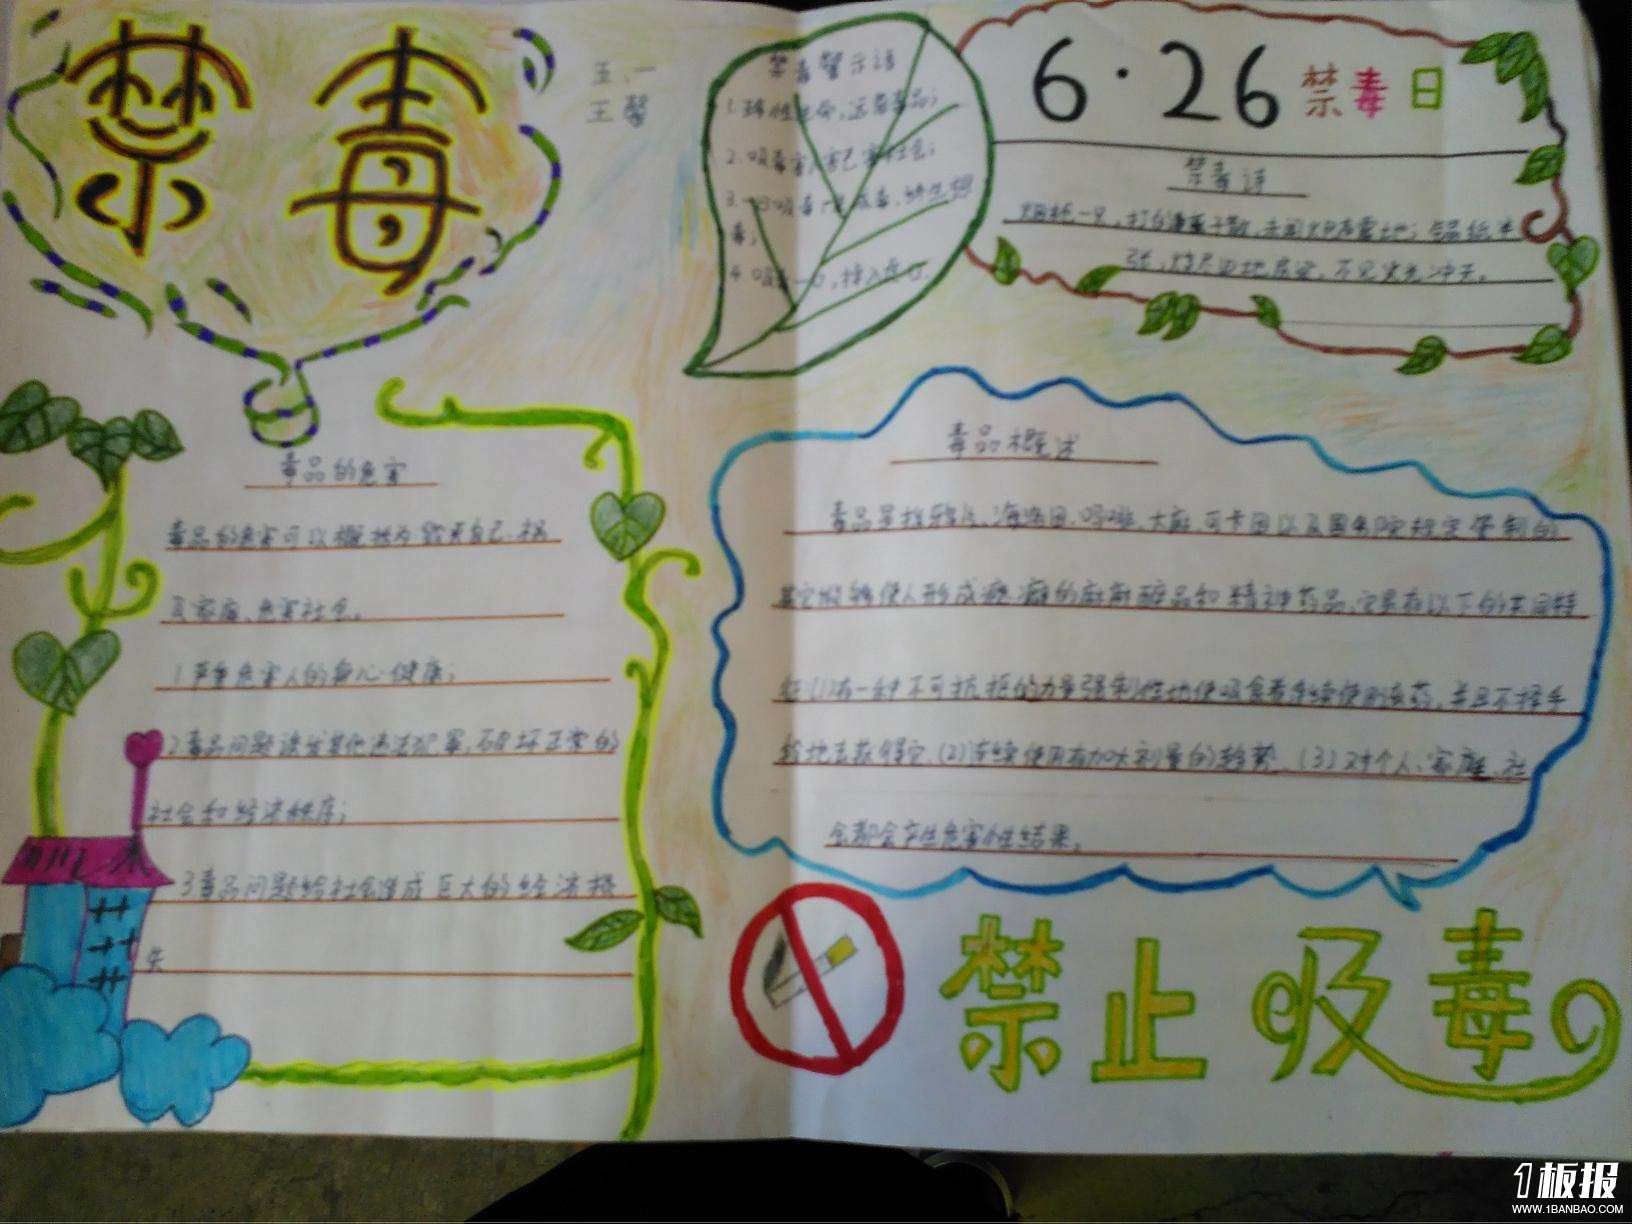 禁毒
五.一
王馨
禁毒警示语
1.珍惜生命,远离毒品;
2.吸毒害人害己害社会;
3.一日吸毒,
毒;
4.吸毒一口,掉入虎口.
6·26禁毒日
禁毒诗
烟枪一只,打得妻离子散,未闻炮声震地;锡纸半
张,烧尽田地房梁,不见火光冲天。
毒品的危害
毒品的危害可以概括为:毁灭自己、祸
及家庭、危害社会。
1严重危害人的身心健康;
2毒品问题诱发其他违法犯罪,破坏正常的
社会和经济秩序;
3毒品问题给社会造成巨大的经济损
失
毒品概述
毒品是指鸦片、海洛因、吗啡、大麻、可卡因以及国务院规定管制的
其它能够使人形成瘾癖的麻醉品和精神药品,它具有以下的共同特
征:(1)有一种不可抗拒的力量强制性地使吸食者连续使用该药,并且不择手
段地去获得它、(2)连续使用有加大剂量的趋势、(3)对个人、家庭、社
会都会产生危害性结果。
禁止吸毒
1板报
WWW.1BANBAO.COM